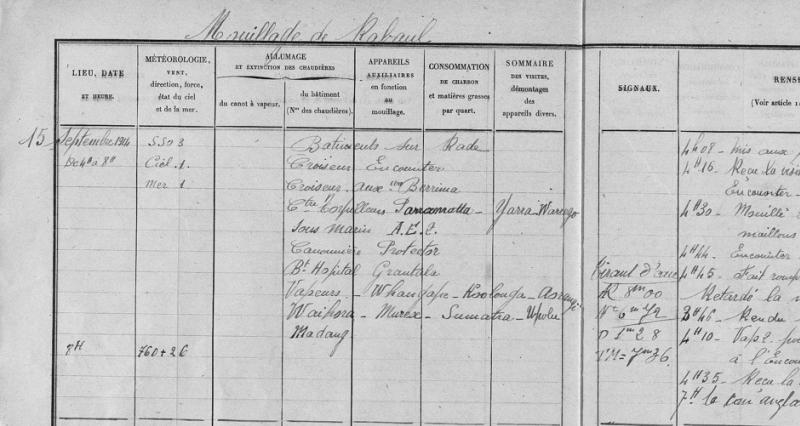 Mouillage de Rabaul
LIEU, DATE
ET HEURE.
MÉTÉOROLOGIE,
VENT,
direction, force,
état du ciel
et de la mer.
ALLUMAGE
ET EXTINCTION DES CHAUDIÈRES
du canot à vapeur.
du bâtiment
(Nos des chaudières).
APPAREILS
AUXILIAIRES
en fonction
au
mouillage.
CONSOMMATION
DE CHARBON
et matières grasses
par quart.
SOMMAIRE
DES VISITES,
démontages
des
appareils divers.
SIGNAUX.
RENSE
(Voir article 1
15 Septembre 1914 SSO 3 Batiments sur Rade
De 4h à 8h Ciel 1 Croiseur Encounter
Mer 1 Croiseur aux Berrima
Ctre Torpilleurs Parramatta - Yarra - Warrego
Sous Marin A.E.2.
Canonnière Protector
Bt Hopital Grantala
Vapeurs - Whangape - Koolonga -
Waihora - Murex - Sumatra - Upolu
Madang
7H 760+26
Tirant d'eau
AR 8m00
6m72
D 1m28
TM = 7m36
4h08 - mis aux
4H16 - Recu la visi
Encounter -
4H30 - Mouillé
maillons
4H44 Encounter
4H45 - Fait
Retardé la
3H46 - Rendu
4H10 - Vap2
à l'Encou
4H35 - Recu la
7H le